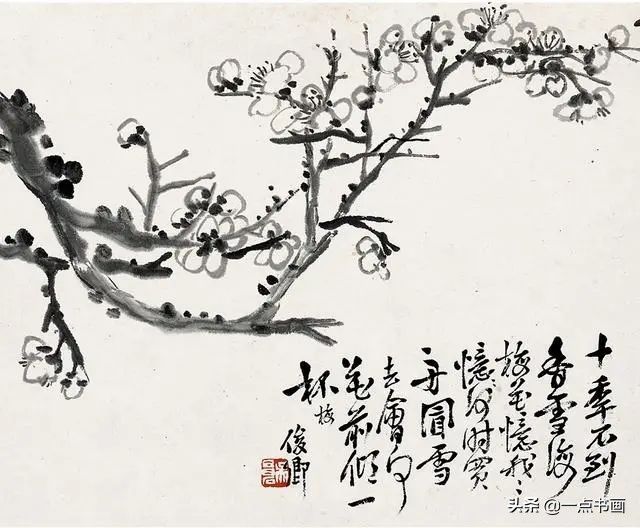 十秊不到
香雪海
梅花憶我〻
憶何时買
舟冒雪
去會向
花前傾一
杯 梅
俊卿
头条 @一点书画